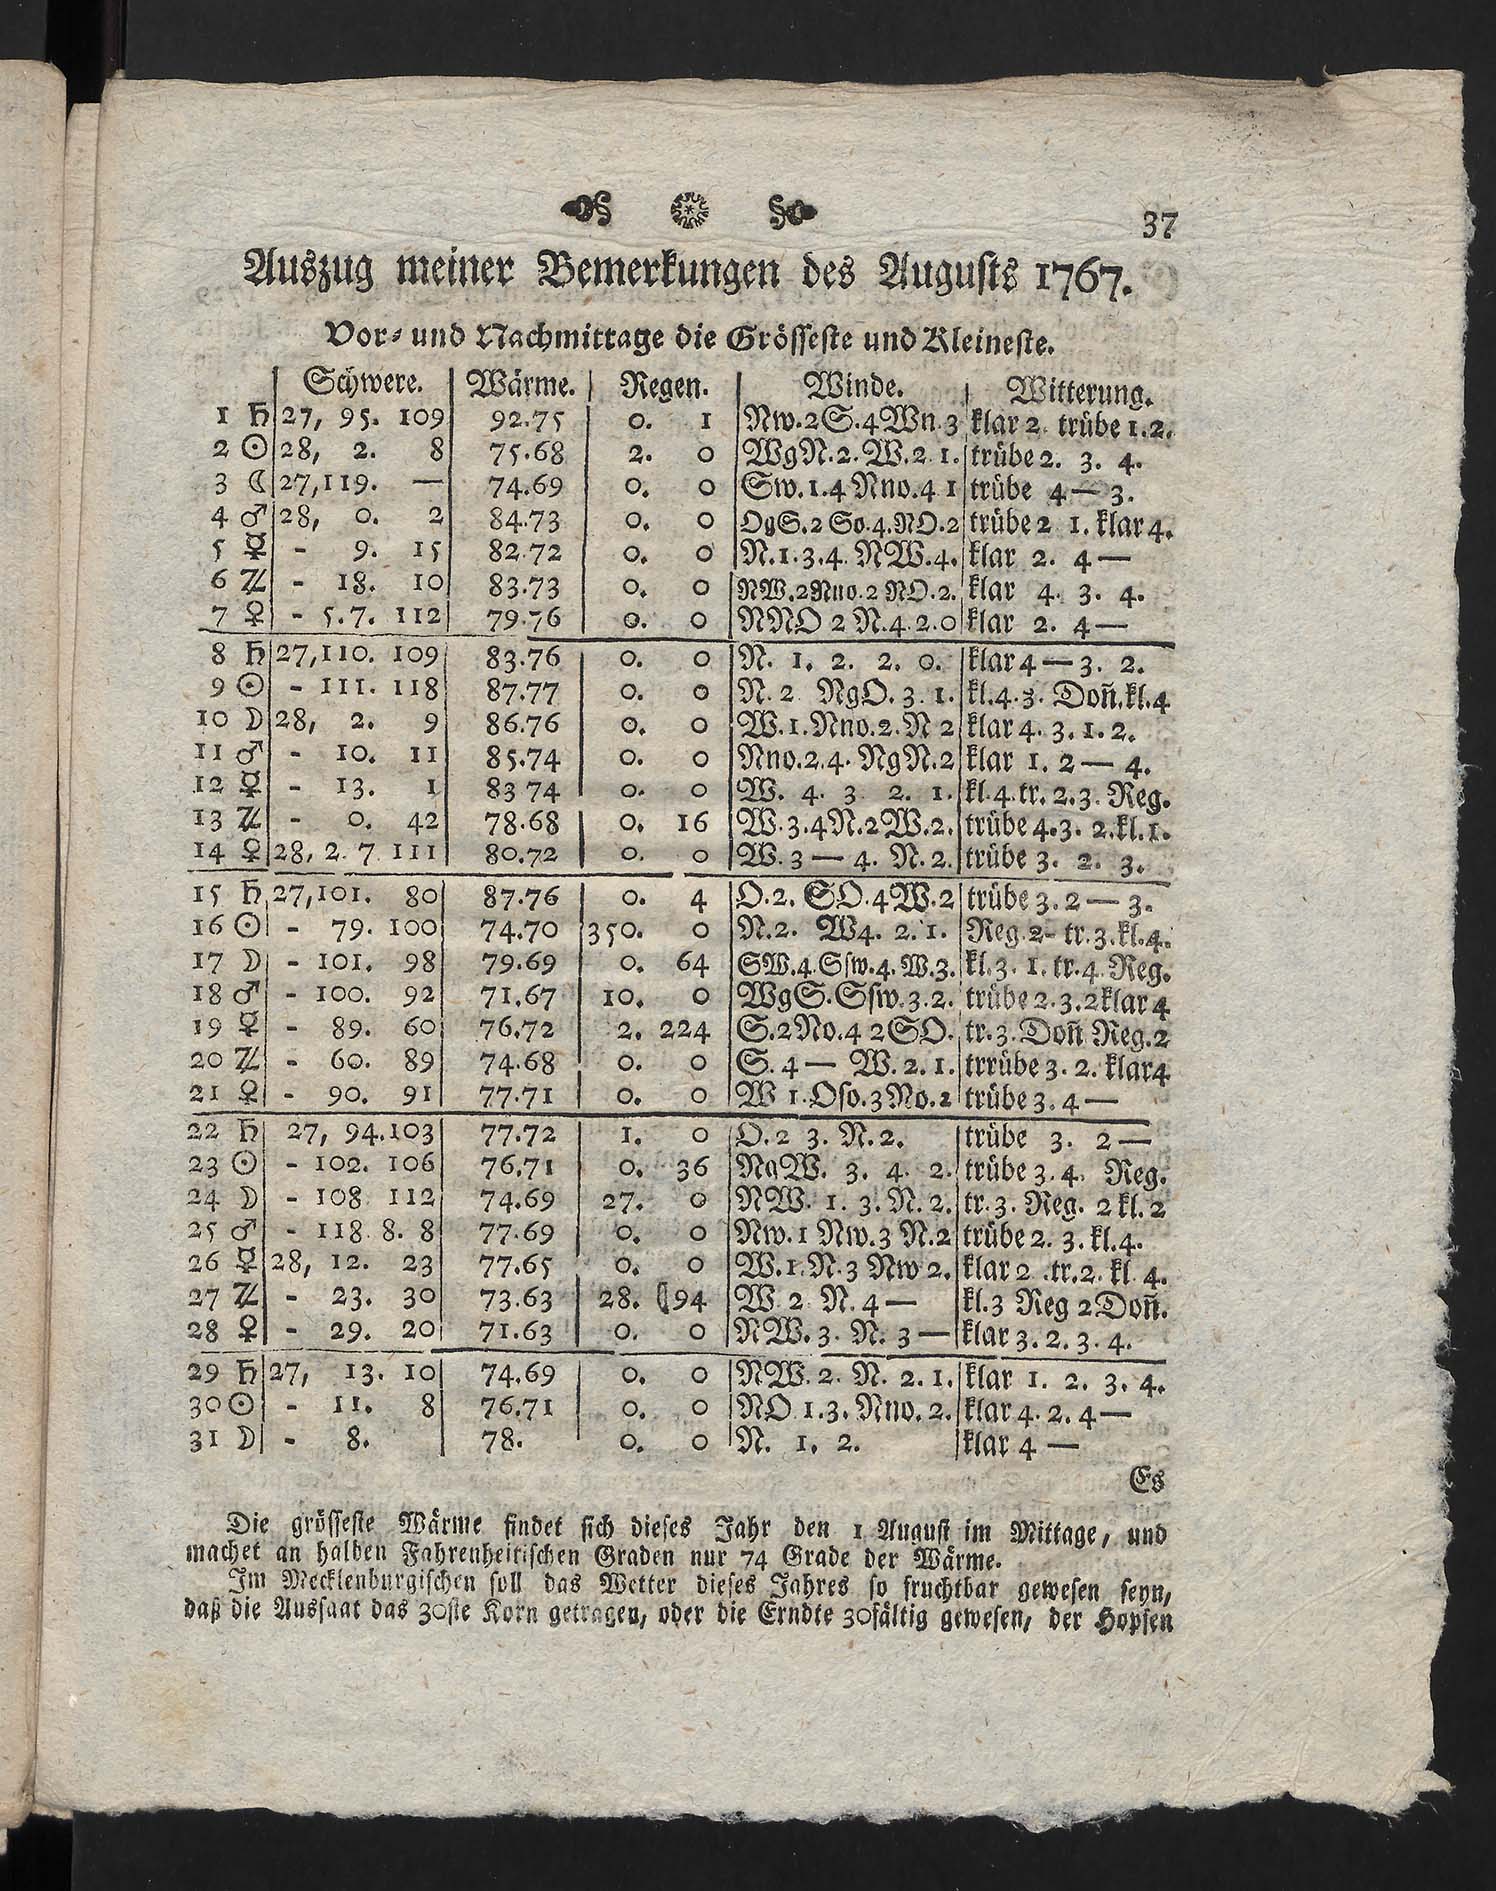 37
Auszug meiner Bemerkungen des Augusts 1767.
Vor- und Nachmittage die Grösseste und Kleineste.
Schwere. Wärme. Regen. Winde. Witterung.
1 ♄ 27, 95. 109 92.75 0. 1 Nw.2S.4Wn.3 klar 2. trübe 1.2.
2 ☉ 28, 2. 8 75.68 2. 0 WgN.2.W.2.1. trübe 2. 3. 4.
3 ☾ 27,119. — 74.69 0. 0 Sw.1.4 Nno.4 1 trübe 4 — 3.
4 ♂ 28, 0. 2 84.73 0. 0 OgS.2 So.4.NO.2 trübe 2 1. klar 4.
5 ☿ - 9. 15 82.72 0. 0 N.1.3.4. NW.4. klar 2. 4 —
6 ♃ - 18. 10 83.73 0. 0 NW.2Nno.2 NO.2. klar 4. 3. 4.
7 ♀ - 5.7. 112 79.76 0. 0 NNO 2 N.4.2.0 klar 2. 4 —
8 ♄ 27,110. 109 83.76 0. 0 N. 1. 2. 2. 0. klar 4 — 3. 2.
9 ☉ - 111. 118 87.77 0. 0 N. 2 NgO. 3. 1. kl.4.3. Don̄.kl.4
10 ☽ 28, 2. 9 86.76 0. 0 W.1.Nno.2.N 2 klar 4. 3. 1. 2.
11 ♂ - 10. 11 85.74 0. 0 Nno.2.4. NgN.2 klar 1. 2 — 4.
12 ☿ - 13. 1 83 74 0. 0 W. 4. 3 2. 1. kl.4.tr. 2.3. Reg.
13 ♃ - 0. 42 78.68 0. 16 W.3.4N.2W.2. trübe 4.3. 2.kl.1.
14 ♀ 28, 2. 7 111 80.72 0. 0 W. 3 — 4. N. 2. trübe 3. 2. 3.
15 ♄ 27,101. 80 87.76 0. 4 O.2. SO.4W.2 trübe 3. 2 — 3.
16 ☉ - 79. 100 74.70 350. 0 N.2. W4. 2. 1. Reg.2- tr.3.kl.4.
17 ☽ - 101. 98 79.69 0. 64 SW.4.Ssw.4.W.3. kl.3. 1. tr.4.Reg.
18 ♂ - 100. 92 71.67 10. 0 WgS.Ssw.3.2. trübe 2.3.2klar 4
19 ☿ - 89. 60 76.72 2. 224 S.2No.4 2SO. tr.3.Don̄ Reg.2
20 ♃ - 60. 89 74.68 0. 0 S. 4 — W. 2. 1. trrübe 3. 2. klar4
21 ♀ - 90. 91 77.71 0. 0 W 1.Oso.3No.2 trübe 3. 4 —
22 ♄ 27, 94.103 77.72 1. 0 O. 2 3. N. 2. trübe 3. 2 —
23 ☉ - 102. 106 76.71 0. 36 NgW. 3. 4. 2. trübe 3. 4. Reg.
24 ☽ - 108 112 74.69 27. 0 NW. 1. 3. N. 2. tr. 3. Reg. 2 kl. 2
25 ♂ - 118. 8. 8 77.69 0. 0 Nw.1 Nw.3 N.2 trübe 2. 3. kl.4.
26 ☿ 28, 12. 23 77.65 0. 0 W.1.N.3 Nw 2. klar 2 .tr.2. kl. 4.
27 ♃ - 23. 30 73.63 28. 94 W 2 N. 4 — kl.3 Reg 2Don̄.
28 ♀ - 29. 20 71.63 0. 0 NW. 3. N. 3 — klar 3. 2. 3. 4.
29 ♄ 27, 13. 10 74.69 0. 0 NW. 2. N. 2. 1. klar 1. 2. 3. 4.
30 ☉ - 11. 8 76.71 0. 0 NO 1.3. Nno. 2. klar 4. 2. 4 —
31 ☽ - 8. 78. 0. 0 N. 1. 2. klar 4 —
Es
Die grösseste Wärme findet sich dieses Jahr den 1 August im Mittage, und
machet an halben Fahrenheitischen Graden nur 74 Grade der Wärme.
Im Mecklenburgischen soll das Wetter dieses Jahres so fruchtbar gewesen seyn,
daß die Aussaat das 30ste Korn getragen, oder die Erndte 30fältig gewesen, der Hopfen